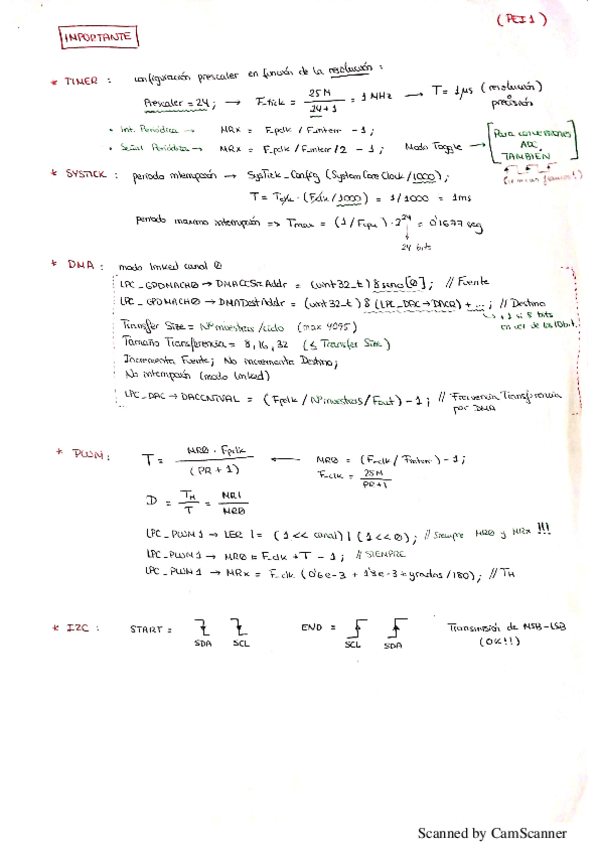 (PEI 1)
IMPORTANTE
* TIMER : configuración prescaler en función de la resolución :
Prescaler = 24 ; → F_tick = 25M / 24+1 = 1 MHz → T = 1 μs (resolución)
precisión
• Int. Periódica → MRx = Fpclk / Finterr - 1 ;
• Señal Periódica → MRx = Fpclk / Finterr / 2 - 1 ; Modo Toggle → [Para conversiones
ADC
TAMBIÉN]
* SYSTICK : periodo interrupción → SysTick_Config (System Core Clock / 1000) ;
/ 1000) = 1/1000 = 1ms
periodo maximo interrupción => Tmax = (1 / Fcpu) · 2^24 = 0'1677 seg
24 bits
* DMA : modo linked canal 0
LPC_GPDMACH0 → DMACCSrcAddr = (uint32_t) & seno[0] ; // Fuente
LPC_GPDMACH0 → DMADestAddr = (uint32_t) & (LPC_DAC → DACR) + ... ; // Destino
8 bits
en vez de los 10bit.
Transfer Size = Nº muestras/ciclo (max 4095)
Tamaño Transferencia = 8, 16, 32 (≤ Transfer Size)
Incrementa Fuente ; No incrementa Destino ;
No interrupción (modo linked)
LPC_DAC → DACCNTVAL = (Fpclk / Nºmuestras / Fout) - 1 ; // Frecuencia Transferencia
por DMA
* PWM : T = MR0 · Fpclk / (PR + 1) ← MR0 = (F_clk / Finterr) - 1 ;
F_clk = 25M / PR+1
D = TH / T = MR1 / MR0
LPC_PWM1 → LER |= (1 << canal) | (1 << 0) ; // Siempre MR0 y MRx !!!
LPC_PWM1 → MR0 = F_clk * T - 1 ; // SIEMPRE
LPC_PWM1 → MRx = F_clk (0'6e-3 + 1'8e-3 * grados / 180) ; // TH
* I2C : START = SDA SCL END = SCL SDA Transmisión de MSB-LSB
(OK!!)
Scanned by CamScanner